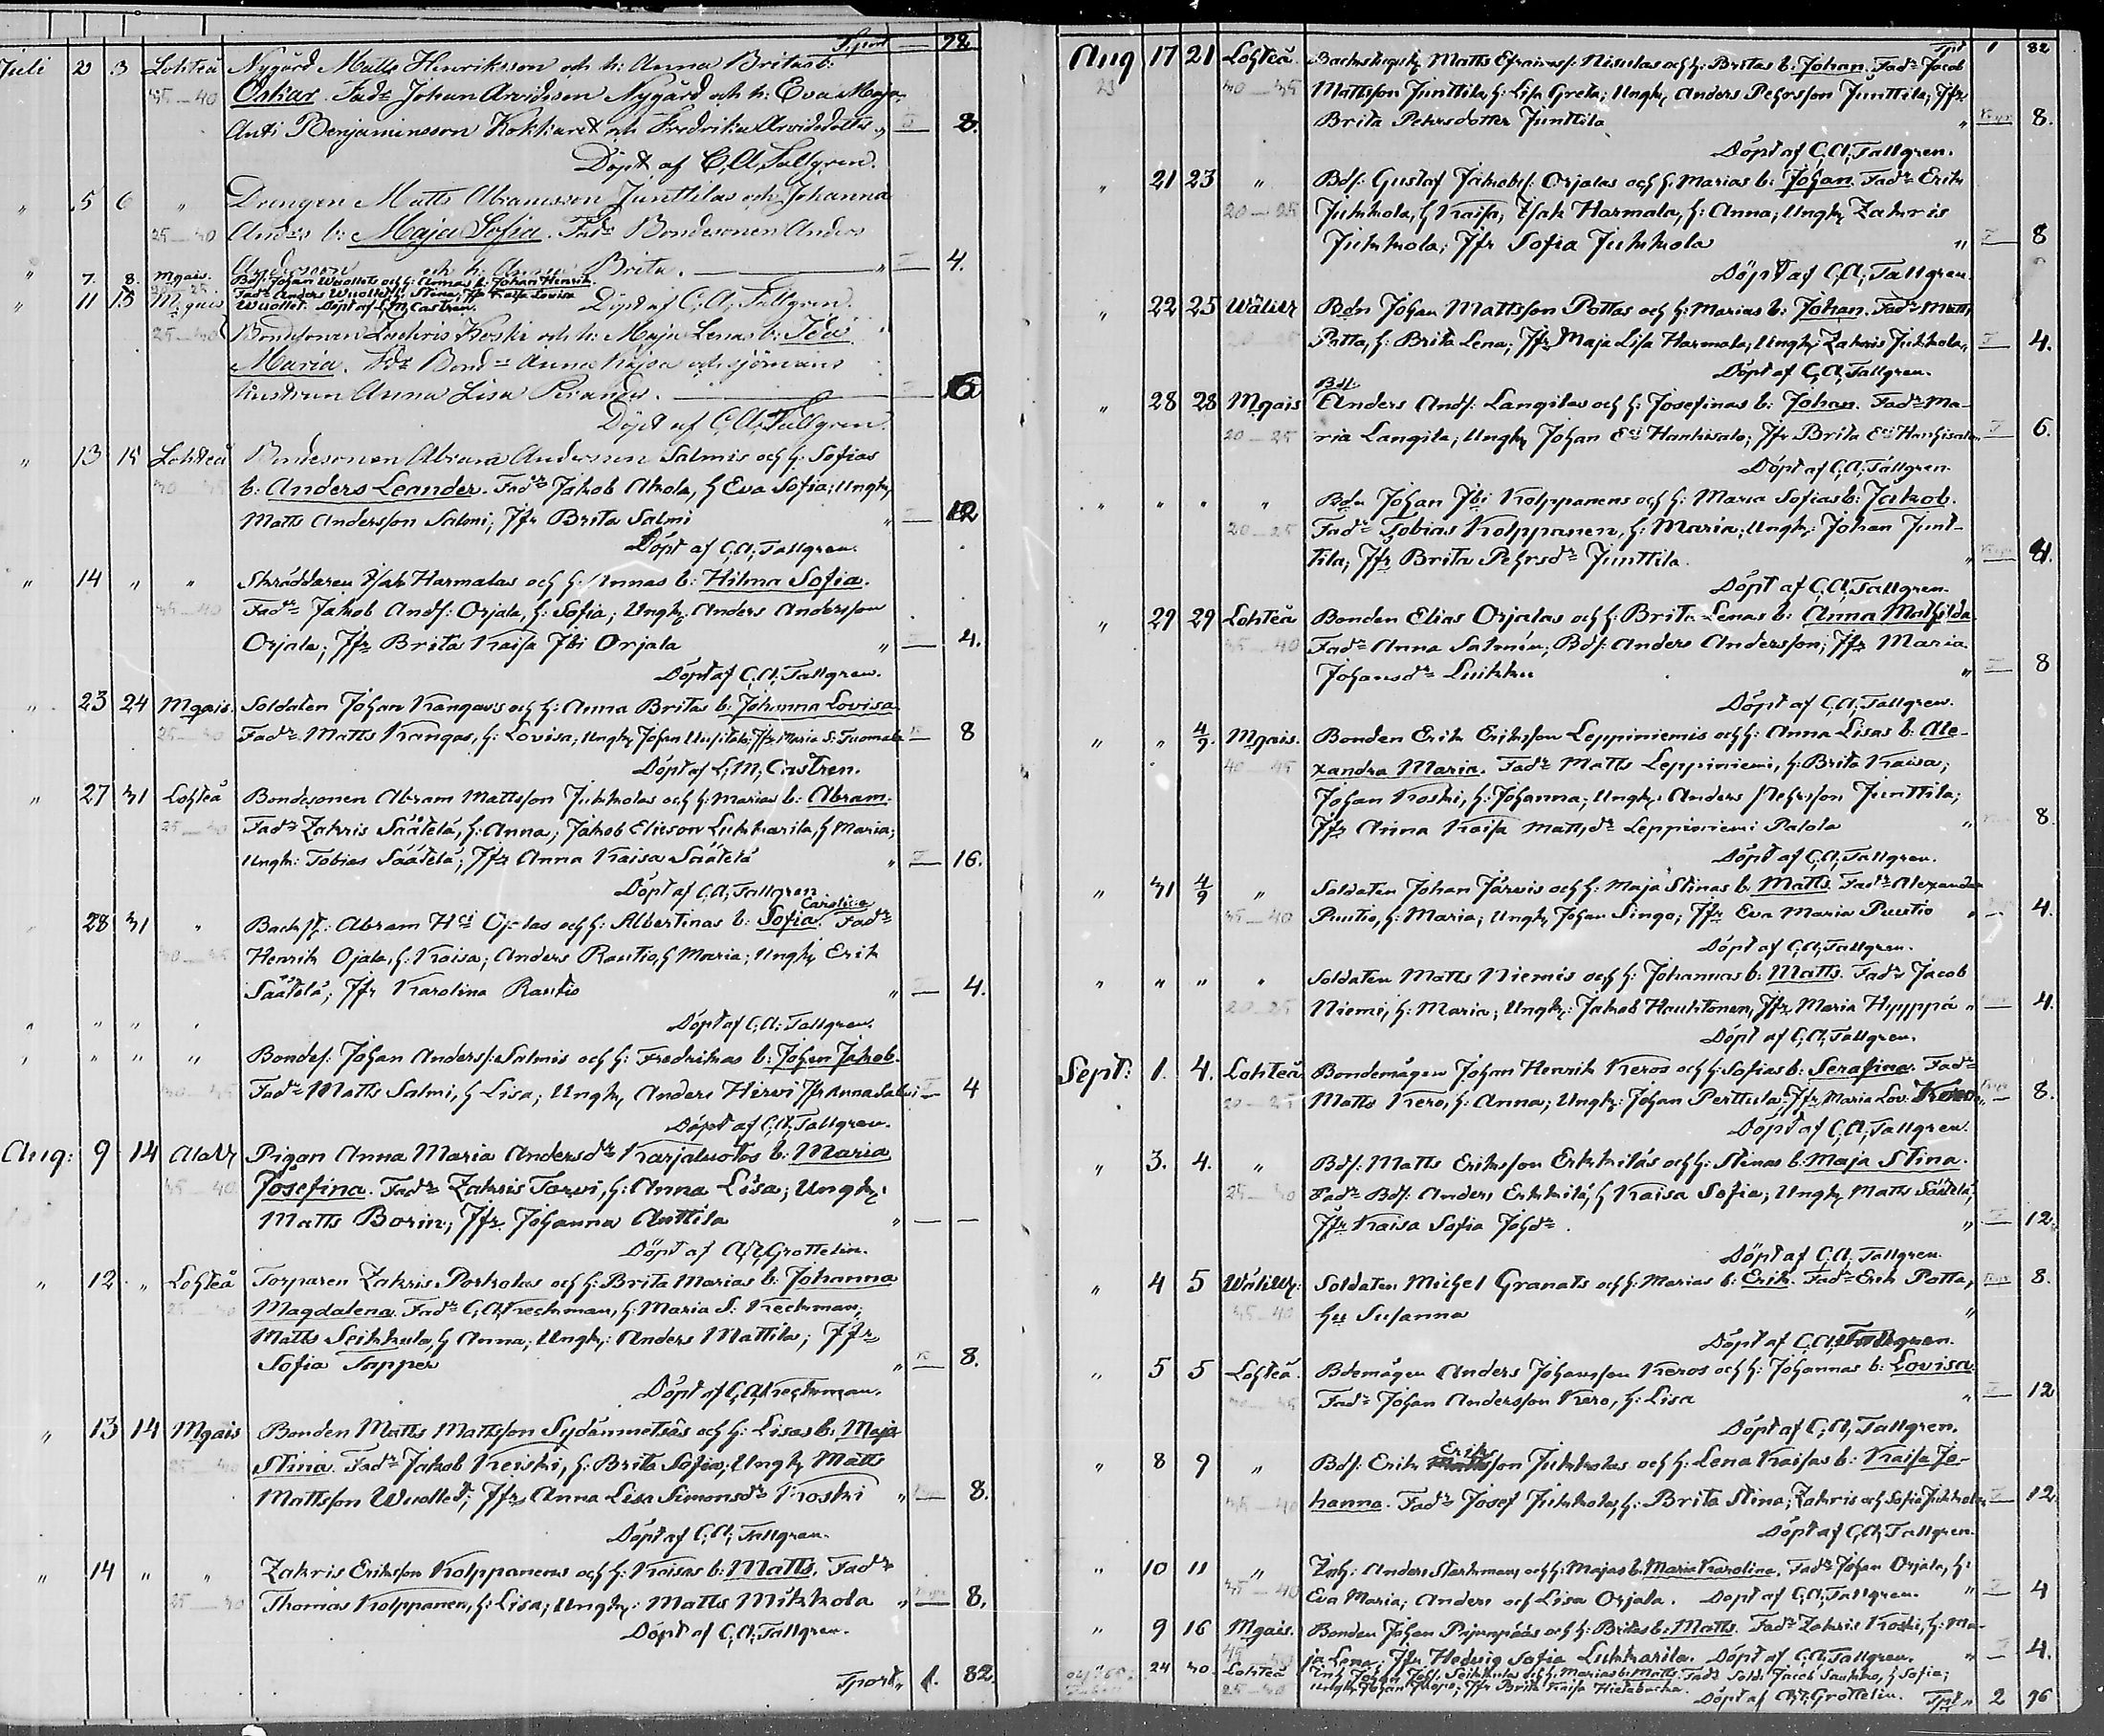 Tport — 72
Juli 2 3 Lohteå Nygård Matts Henriksson och h: Anna Britas b:
35—40 Oskar. Fadr Johan Arvidsson Nygård och h: Eva Maja
Anti Benjaminsson och Fredrika Arvidsdotter „ — 8.
Döpt af C. A. Tallgren.
„ 5 6 „ Drengen Matts Abramsson Junttilas och Johanna
25—30 Andrs b: Maja Sofia. Fadr Bondesonen Anders
och h: Anna Brita. — „ — 4.
„ 7. 8. Mgais. Bdf: Johan Wuollets och h: Annas b: Johan Henrik.
20—25. Fadr Anders Wuollet, h: Stina; Jfr Kaisa Lovisa
Wuollet. Döpt af L. M. Castren. Döpt af C. A. Tallgren.
„ 11 13 Mgais
25—30 Bondesonen Zachris Koski och h: Maja Lenas b: Ida
Maria. Fdr Anna Kajsa och sjömans
hustrun Anna Lisa — — 6
Döpt af C. A. Tallgren.
„ 13 15 Lohteå Bondesonen Abram Andersson Salmis och h: Sofias
b: Anders Leander. Fadr Jakob Ahola, h Eva Sofia; Ungk,
Matts Andersson Salmi; Jfr Brita Salmi „ — 12
Döpt af C. A. Tallgren.
„ 14 „ „ Skräddaren Isak Harmalas och h: Annas b: Hilma Sofia.
35—40 Fadr Jakob Andf: Orjala, h: Sofia; Ungk, Anders Andersson
Orjala; Jfr Brita Kaisa Jbi Orjala „ — 4.
Döpt af C. A. Tallgren.
„ 23 24 Mgais. Soldaten Johan Kangavs och h: Anna Britas b: Johanna Lovisa
25—30 Fadr Matts Kangas, h: Lovisa, Ungk, Johan Uusitalo; Jfr Maria S: Tuomala — 8
Döpt af L. M. Castren.
„ 27 31 Lohteå Bondesonen Abram Mattsson Jukkolas och h: Marias b: Abram.
25—30 Fadr Zakris Säätelä, h: Anna; Jakob Elieson Lukkarila, h Maria;
Ungk: Tobias Säätelä; Jfr Anna Kaisa Säätelä „ — 16.
Döpt af C. A. Tallgren
Carolina
28 31 „ Backst: Abram Hci Ojalas och h: Albertinas b: Sofia. Fadr
Henrik Ojala, h: Kaisa; Anders Rautio, h Maria; Ungk, Erik
Säätelä; Jfr Karolina Rautio „ — 4.
„ „ „ „ Döpt af C. A. Tallgren.
„ „ „ „ Bondes: Johan Andersf: Salmis och h: Fredrikas b: Johan Jakob.
Fadr Matts Salmi, h Lisa; Ungk, Anders Hirvi Jfr Anna Salmi — 4
Döpt af C. A. Tallgren.
Aug: 9 14 Alav. Pigan Anna Maria Andersdr Karjaluotos b: Maria
35—40 Josefina. Fadr Zakris Torvi, h: Anna Lisa; Ungk:
Matts Borin; Jfr Johanna Anttila „ — —
Döpt af Grottelin.
„ 12. „ Lohteå Torparen Zakris Porkolas och h: Brita Marias b: Johanna
Magdalena. Fadr C. A. Keckman, h: Maria S: Keckman;
Matts Seikkula, h Anna; Ungk: Anders Mattila; Jfr
Sofia Tapper „ — 8.
Döpt af C. A. Keckman.
„ 13 14 Mgais Bonden Matts Mattsson Sydänmetsäs och h: Lisas b: Maja
25—30 Stina. Fadr Jakob Keiski, h: Brita Sofia; Ungk, Matts
Mattsson Wuollet; Jfr Anna Lisa Simonsdr Koski „ — 8.
Döpt af C. A. Tallgren.
„ 14 „ „ Zakris Eriksson Kolppanens och h: Kaisas b: Matts. Fadr
25—30 Thomas Kolppanen, h: Lisa; Ungk: Matts Mikkola „ — 8.
Döpt af C. A. Tallgren.
Tport „ 1. 82.
Tpt 1 82
Aug 17 21 Lohteå. Matts Efraimsf: Niskalas och h: Britas b: Johan. Fadr Jacob
23 30—35 Mattsson Junttila, h: Lisa Greta; Ungk, Anders Pehrsson Junttila; Jfr
Brita Pehrsdotter Junttila „ — 8.
Döpt af C. A. Tallgren.
„ 21 23 „ Bdf: Gustaf Jakobsf: Orjalas och h: Marias b: Johan. Fadr Erik
20—25 Jukkola, h Kaisa, Isak Harmala, h: Anna; Ungk, Zakris
Jukkola; Jfr Sofia Jukkola „ — 8
Döpt af C. A. Tallgren.
„ 22 25 Wälikk Bdn Johan Mattsson Pottas och h: Marias b: Johan. Fadr Matts
20—25 Potta, h: Brita Lena; Jfr Maja Lisa Harmala; Ungk, Zakris Jukkola, — 4.
Döpt af C. A. Tallgren.
Bdf:
„ 28 28 Mgais Anders Andf: Langilas och h: Josefinas b: Johan. Fadr Ma-
20—25 ria Langila; Ungk, Johan Eri Hankisalo; Jfr Brita Eri Hankisalo — 6.
Döpt af C. A. Tallgren.
„ „ „ „ Bdn Johan Jbi Kolppanens och h: Maria Sofias b: Jakob.
20—25 Fadr Tobias Kolppanen, h: Maria; Ungk: Johan Junt-
tila; Jfr Brita Pehrsdr Junttila. „ — 4.
Döpt af C. A. Tallgren.
„ 29 29 Lohteå Bonden Elias Orjalas och h: Brita Lenas b: Anna Mathilda
35—40 Fadr Anna Salmén; Bdf: Anders Andersson; Jfr Maria
Johansdr Luikku „ — 8
Döpt af C. A. Tallgren.
„ „ 4/9. Mgais. Bonden Erik Eriksson Leppiniemis och h: Anna Lisas b: Ale-
40—45 xandra Maria. Fadr Matts Leppiniemi, h: Brita Kaisa;
Johan Koski, h: Johanna; Ungk: Anders Pehrsson Junttila;
Jfr Anna Kaisa Mattsdr Leppiniemi Palola „ — 8.
Döpt af C. A. Tallgren.
„ 31 4/9 „ Soldaten Johan Järvis och h: Maja Stinas b: Matts. Fadr Alexander
35—40 Puutio, h: Maria; Ungk, Johan Singo; Jfr Eva Maria Puutio „ — 4.
Döpt af C. A. Tallgren.
„ „ „ „ Soldaten Matts Niemis och h: Johannas b: Matts. Fadr Jacob
20—25 Niemi, h: Maria; Ungk: Jakob Hauhtonen, Jfr Maria Hyyppä „ — 4.
Döpt af C. A. Tallgren.
Sept: 1. 4. Lohteå Bondemågen Johan Henrik Keros och h: Sofias b: Serafina. Fadr
20—25 Matts Kero, h: Anna; Ungk: Johan Perttula. Jfr Maria Lov: Kero „ — 8.
Döpt af C. A. Tallgren.
„ 3. 4. „ Bdf: Matts Eriksson Erkkiläs och h: Stinas b: Maja Stina.
25—30 Fadr Bdf: Anders Erkkilä, h Kaisa Sofia; Ungk, Matts Säätelä,
Jfr Kaisa Sofia Johdr. „ — 12.
Döpt af C. A. Tallgren.
„ 4 5 Wälikk: Soldaten Michel Granats och h: Marias b: Erik. Fadr Erik Potta, — 8.
35—40 hu Susanna „
Döpt af C. A. Tallgren.
„ 5 5 Lohteå. Bdemågen Anders Johansson Keros och h: Johannas b: Lovisa.
Fadr Johan Andersson Kero, h: Lisa „ — 12
Döpt af C. A. Tallgren.
Eriks
„ 8 9 „ Bdf: Erik son Jukkolas och h: Lena Kaisas b: Kaisa Jo-
hanna. Fadr Josef Jukkola, h: Brita Stina; Zakris och Sofia Jukkola — 12.
Döpt af C. A. Tallgren.
„ 10 11 „ Inh: Anders Starkmans och h: Majas b: Maria Karolina. Fadr Johan Orjala, h:
35—40 Eva Maria; Anders och Lisa Orjala. Döpt af C. A. Tallgren. „ — 4
„ 9 16 Mgais. Bonden Johan och h: Britas b: Matts. Fadr Zakris Koski, h: Ma-
ja Lena; Jfr Hedvig Sofia Lukkarila. Döpt af C. A. Tallgren. „ — 4.
24 30. Lohteå Inh Johan Johf: Seikkulas och h: Marias b: Matts. Fadr Sold: Jacob Saukko, h Sofia;
25—30 Ungk, Johan; Jfr Brita Kaisa. Döpt af Grottelin. Tpt „ 2 96